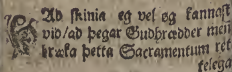 AD skinia eg vel og kannast
vid/ad þegar Gudhrædder men̄
bruka þetta Sacramentum ret-
telega